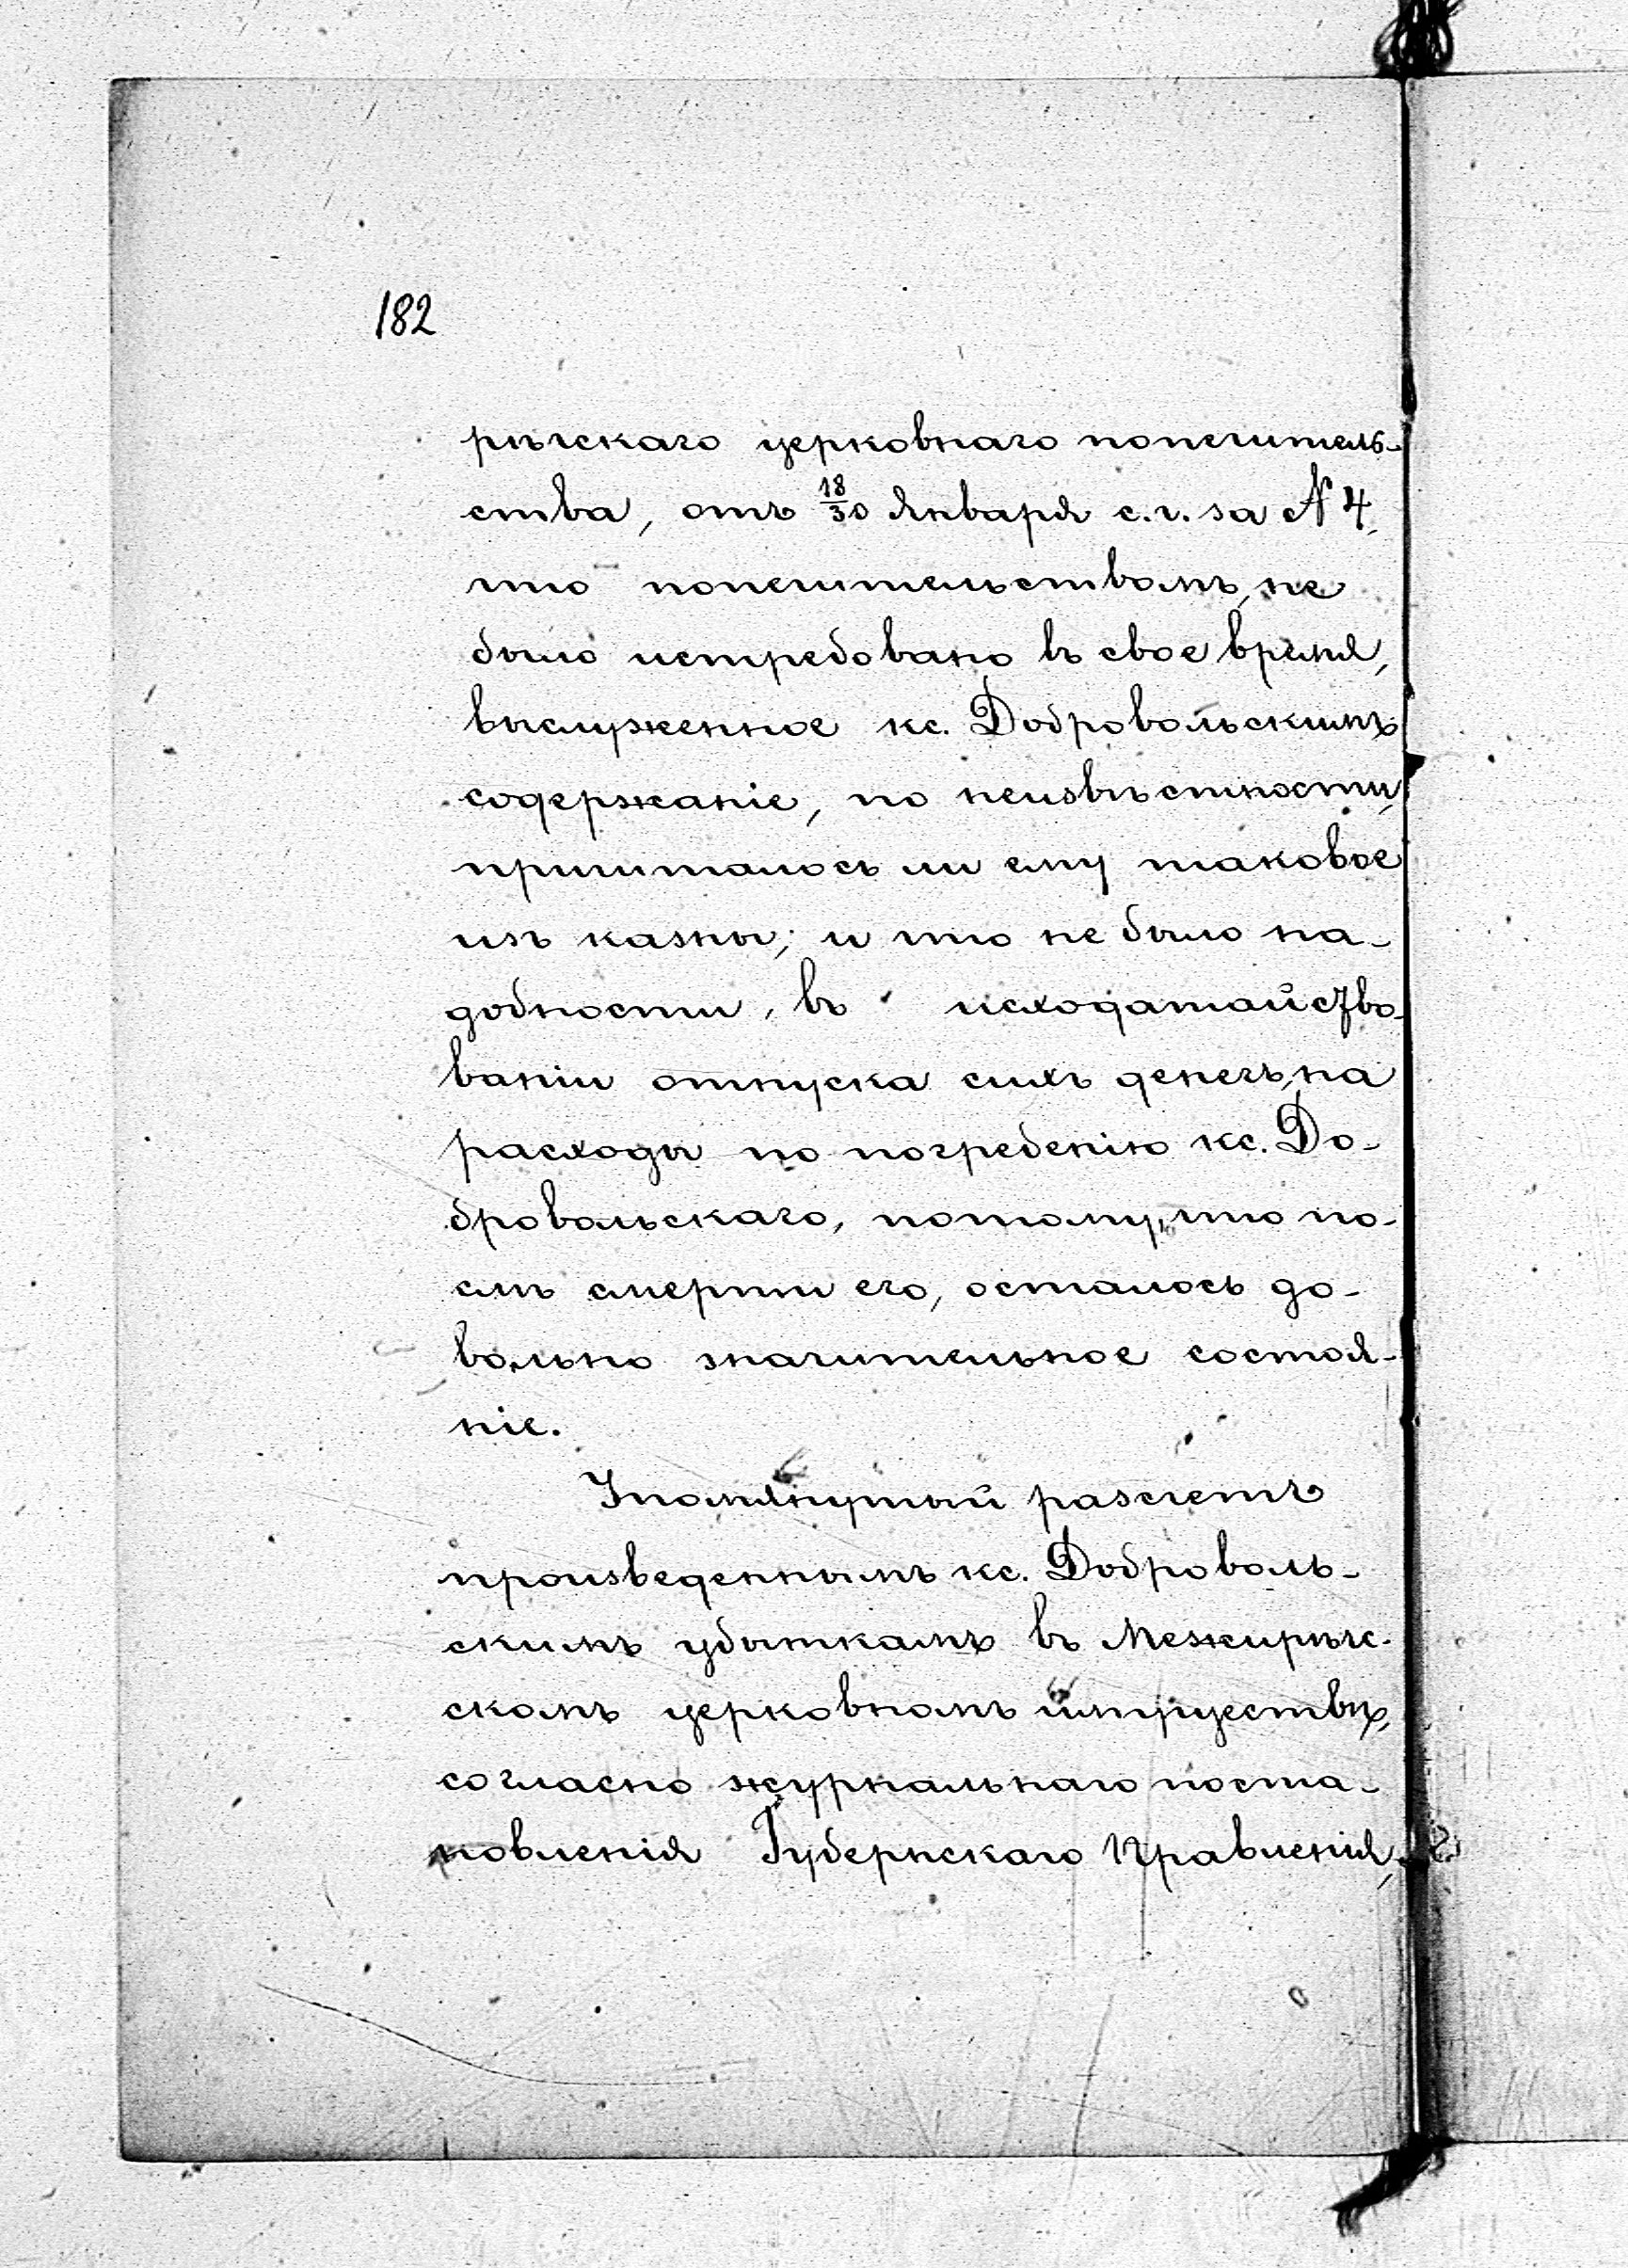 182
рѣчскаго церковнаго попечитель-
ства, отъ 18/30 Января с.г. за № 4,
что попечительствомъ, не
было истребовано въ свое время,
выслуженное кс. Добровольскимъ
содержаніе, по неизвѣстности,
причиталось ли ему таковое
изъ казны; и что не было на-
добности, въ исходатайство-
ваніи отпуска сихъ денегъ, на
расходы по погребенію кс. До-
бровольскаго, потому, что по-
слѣ смерти его, осталось до-
вольно значительное состоя-
ніе.
Упомянутый разсчетъ
произведеннымъ кс. Доброволь-
скимъ убыткамъ въ Межирѣч-
скомъ церковномъ имуществѣ,
согласно журнальнаго поста-
новленія Губернскаго Правленія,